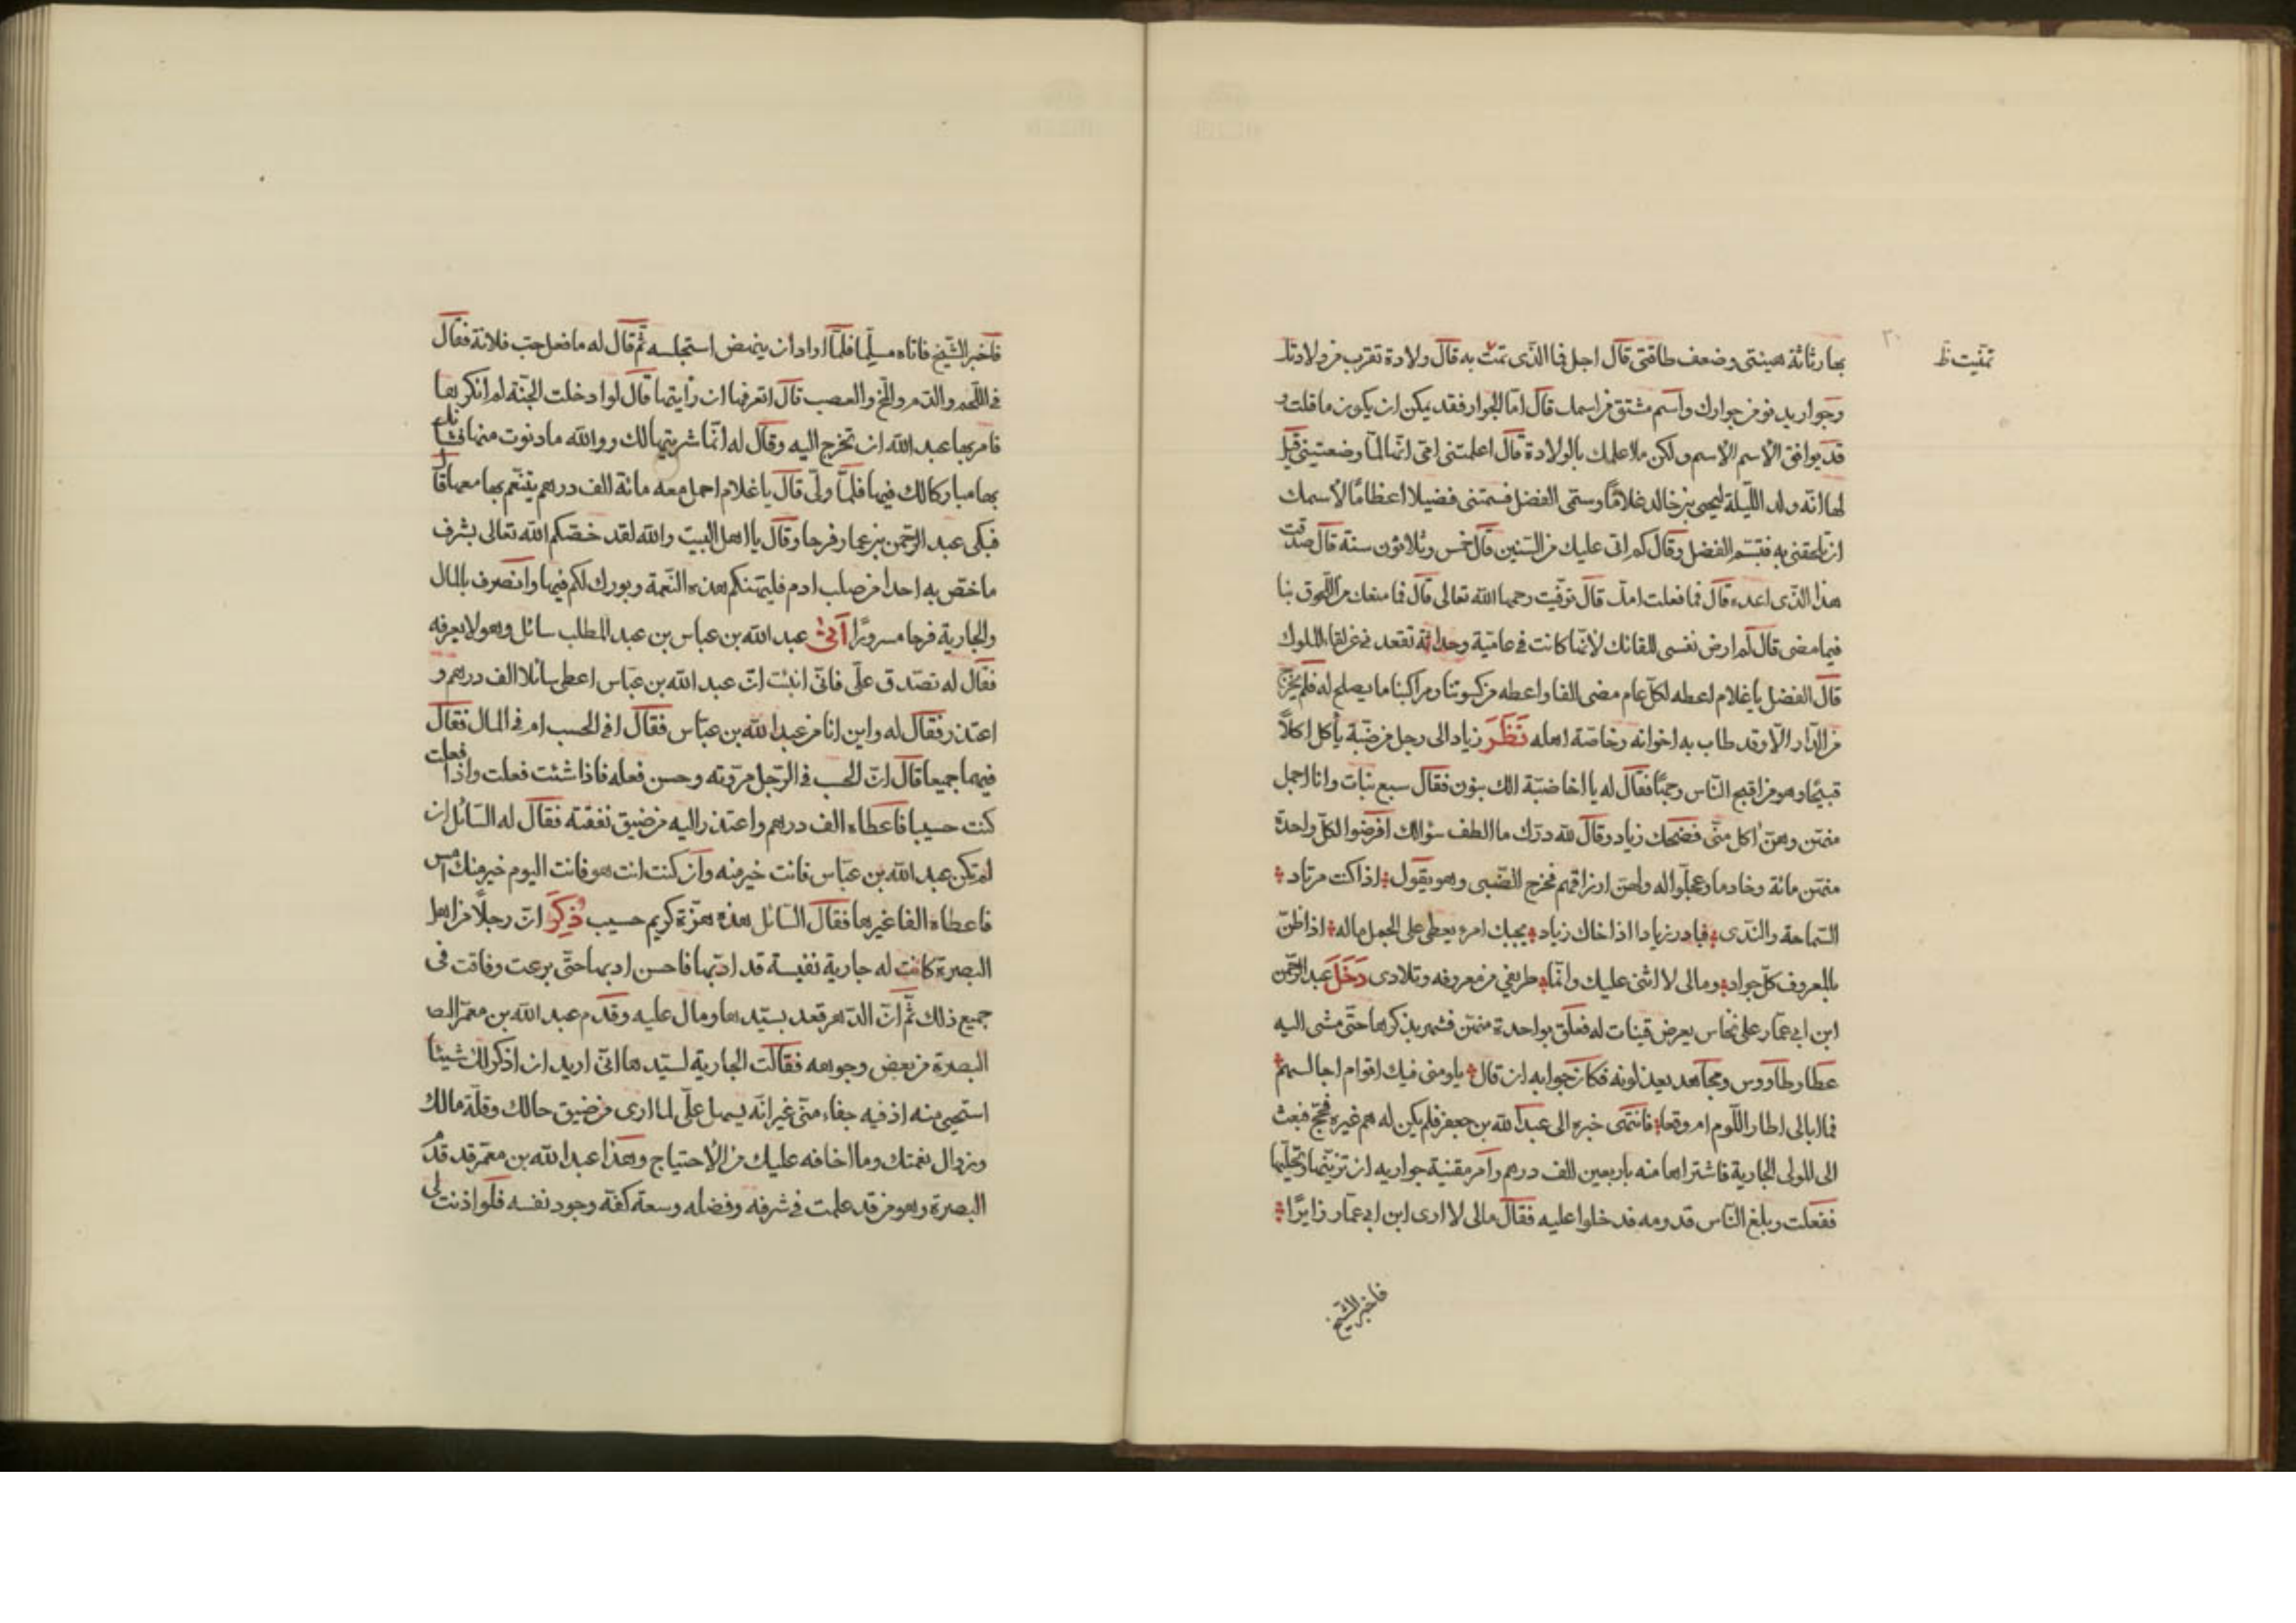 تمنّيت ظ
٣٠
بها رثاثة هيئتى وضعف طاقتى قال اجل فما الذّى تمتّ به قال ولادة تقرب من ولادتك
وجوار يدنو من جوارك واسم مشتق من اسمك قال امّا الجوار فقد يمكن ان يكون ما قلت و
قد يوافق الاسم الاسم ولكن ما علمك بالولادة قال اعلمتنى امّى انّها لمّا وضعتينى قيل
لها انّه ولد اللّيلة ليحيى بن خالد غلامًا وسمّى الفضل فسمّتنى فضيلا اعظامًا لاسمك
ان تلحقنى به فتبسّم الفضل وقال كم اتى عليك من السّنين قال خمس وثلاثون سنة قال صدقت
هذا الذّى اعده قال فما فعلت امك قال توفّيت رحمها الله تعالى قال فما منعك من اللّحوق بنا
فيما مضى قال لم ارض نفسى للقائك لانّها كانت فى عاميّة وحداثة تقعد فى عن لقاء الملوك
قال الفضل يا غلام اعطه لكلّ عام مضى الفا واعطه من كسوتنا ومراكبنا ما يصلح له فلم يخرج
من الدّار الّا وقد طاب به اخوانه وخاصّة اهله نَظَرَ زياد الى رجل من ضبّة يأكل اكلًا
قبيحًا وهو من اقبح النّاس وجهًا فقال له يا اخا ضبّة الك بنون فقال سبع بنات وانا اجمل
منهنّ وهنّ اٰكل منّى فضحك زياد وقال لله درّك ما الطف سؤالك افرضوا لكلّ واحدة
منهنّ مائة وخادما وعجلّوا له ولهنّ ارزاقهم فخرج الضّبى وهو يقول اذا كنت مرتاد
السّماحة والنّدى فبادر زيادا اذا خاك زياد يجبك امرء يعطى على الحمل ماله اذا ظنّ
بالمعروف كلّ جواد ومالى لا اثنى عليك وانّما طريفي من معروفه وتلادى دَخَلَ عبد الرّحمن
ابن ابى عمّار على نخّاس يعرض قينات له فعلق بواحدة منهنّ فشهر بذكرها حتّى مشى اليه
عطا وطاووس ومجاهد يعذلونه فكان جوابه ان قال يلومنى فيك اقوام اجالسهم
فما ابالى اطار اللّوم ام وقعا فانتهى خبره الى عبد الله بن جعفر فلم يكن له همّ غيره فحجّ فبعث
الى المولى الجارية فاشتراها منه باربعين الف درهم وامر مقنية جواريه ان تزيّنها وتحلّيها
ففعلت وبلغ النّاس قدومه قد خلوا عليه فقال مالى لا ارى ابن ابى عمّار زايرًا
فاخبر الشّيخ
فاخبر الشّيخ فاتاه مسلّما فلمّا اراد ان ينهض استجلسه ثّم قال له ما فعل حبّ فلانة فقال
فى اللّحم والدّم والمخّ والعصب قال اتعرفها ان رأيتها قال لو ادخلت الجنّة لم انكرها
فامر بها عبد الله ان تخرج اليه وقال له انّما شريتها لك ووالله ما دنوت منها فشانك
بها مباركا لك فيها فلمّا ولّى قال يا غلام احمل معه مائة الف درهم يتنعّم بها معها قال
فبكى عبد الرّحمن بن عمار فرحا وقال يا اهل البيت والله لقد خصّكم الله تعالى بشرف
ما خصّ به احدا من صلب ادم فليهنكم هذه النّعمة وبورك لكم فيها وانصرف بالمال
والجارية فرحا مسرورًا اَتَى عبد الله بن عباس بن عبد المطلب سائل وهو لا يعرفه
فقال له تصدّق علّى فانّى انبئت انّ عبد الله بن عبّاس اعطى سائلا الف درهم و
اعتذر فقال له واين انا من عبد الله بن عبّاس فقال افى الحسب ام فى المال فقال
فيهما جميعا قال انّ الحسب فى الرّجل مروّته وحسن فعله فاذا شئت فعلت واذا فعلت
كنت حسيبا فاعطاه الف درهم واعتذر اليه من ضيق نفقته فقال له السّائل ان
لم تكن عبد الله بن عبّاس فانت خير منه وان كنت انت هو فانت اليوم خير منك امس
فاعطاه الفا غيرها فقال السّائل هذه هزّة كريم حسيب ذُكِرَ انّ رجلًا من اهل
البصرة كانت له جارية نفيسة قد ادّبها فاحسن ادبها حتّى برعت وفاقت فى
جميع ذلك ثّم انّ الدّهر قعد بسيّدها ومال عليه وقدم عبد الله بن معمّر الى
البصرة من بعض وجوهه فقالت الجارية لسيّدها انّى اريد ان اذكر لك شيئا
استحيى منه اذ فيه جفاء منّى غير انّه يسهل علّى لما ارى من ضيق حالك وقلّة مالك
وزوال نعمتك وما اخافه عليك من الاحتياج وهذا عبد الله بن معمّر قد قدم
البصرة وهو من قد علمت فى شرفه وفضله وسعة كفّه وجود نفسه فلو اذنت لى